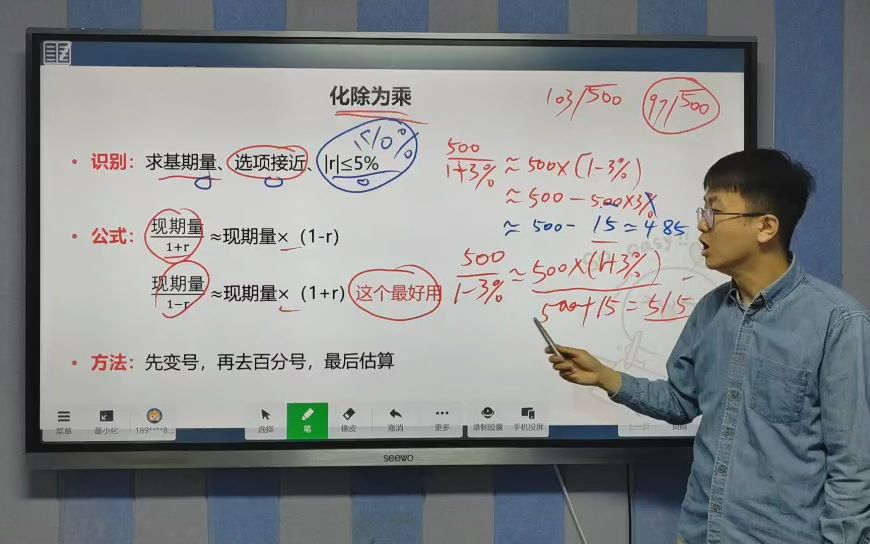 化除为乘
103/500
97/500
• 识别：求基期量、选项接近、|r|≤5%
5/0%
• 公式：现期量/1+r≈现期量×（1-r）
现期量/1-r≈现期量×（1+r）这个最好用
• 方法：先变号，再去百分号，最后估算
500/1+3%≈500×(1-3%)
≈500-500×3%
≈500-15≈485
500/1-3%≈500×(1+3%)
500+15=515
easy!!
菜单
最小化
189****8...
选择
笔
橡皮
撤消
更多
录制胶囊
手机投屏
上一页
seewo